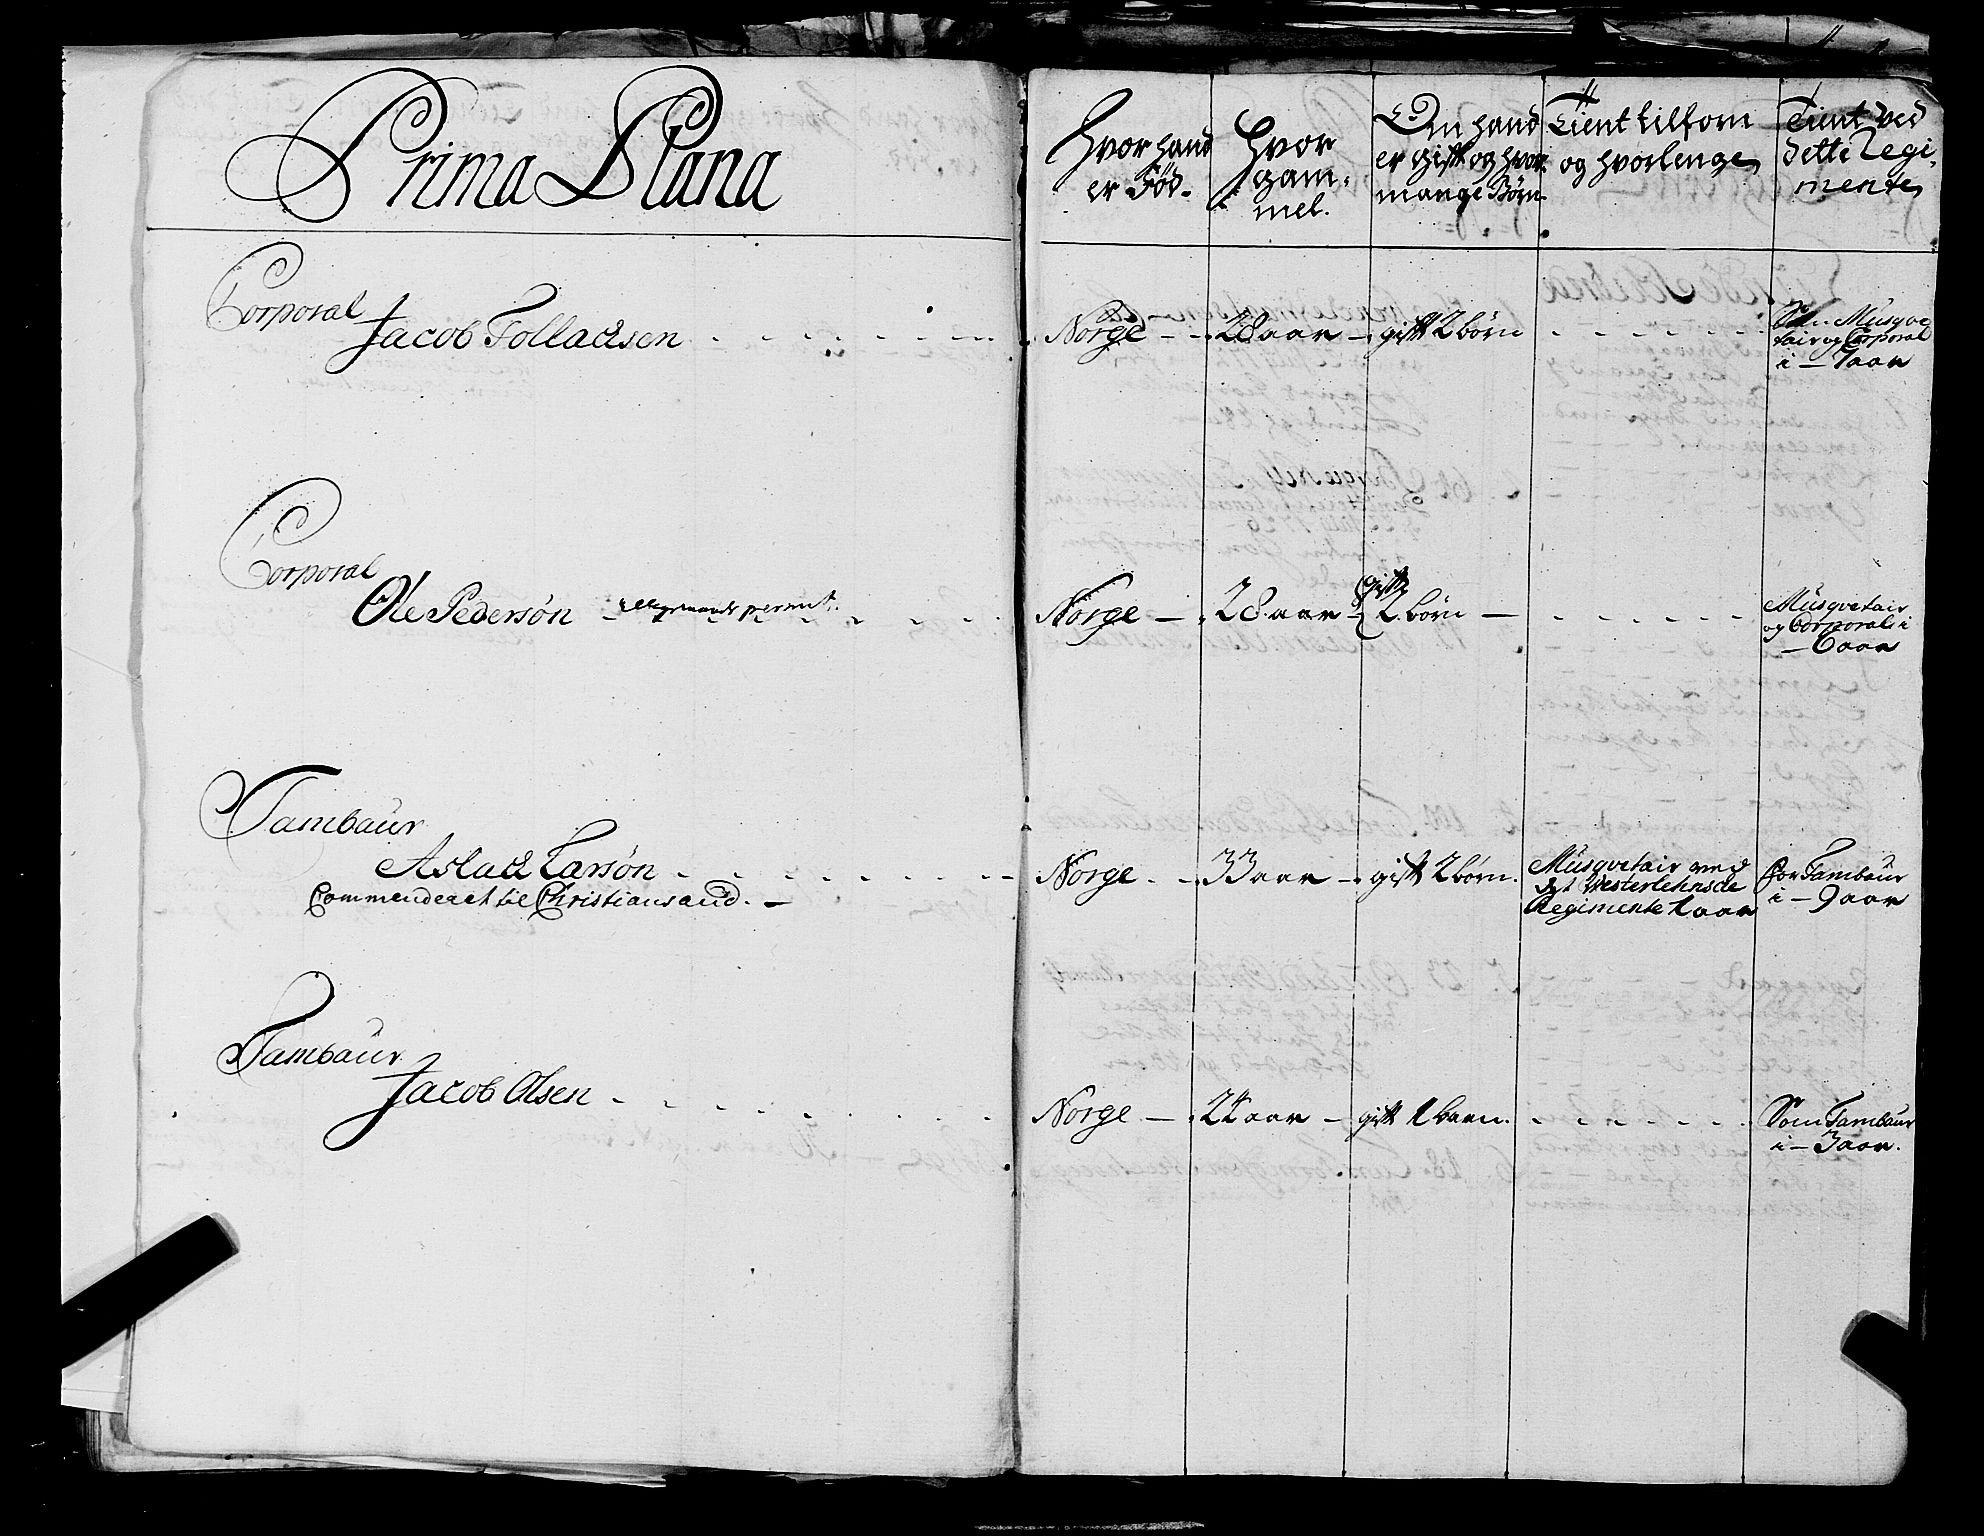 Prima Plana
Hvor hand
er Fød.
Hvor
gam-
mel.
Om hand
er gift og hvor
mange Børn
Tient tilforn
og hvorlenge
Tient ved
dette Regi-
mente
Corporal
Jacob Tolladsen
Norge
28 aar
gift 2 børn
Musqve
tair og Corporal
i - 7 aar
Corporal
Ole Pedersøn permit.
Norge
28 aar
gift
2 børn
Musqvetair
og Corporal i
6 aar
Tambaur
Aslack Larsøn
Commenderet til Christiansand.
Norge
33 aar
gift 2 børn.
Musqvetair ved
det Vesterlehnsde
Regimente 1 aar
For Tambaur
i - 9 aar
Tambaur
Jacob Olsen
Norge
24 aar
gift 1 barn.
Som Tambaur
i - 3 aar.